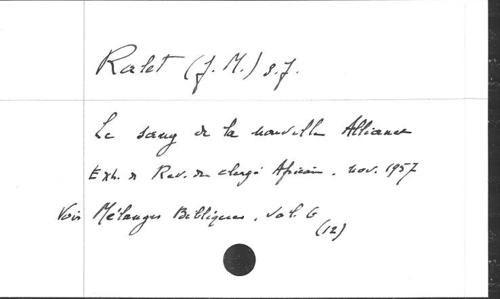 Ralet (J. M.) S.J.
Le sang de la nouvelle Alliance
Extr. de Rev. du clergé Africain. nov. 1957
Voir Mélanges Bibliques, vol. 6
(12)